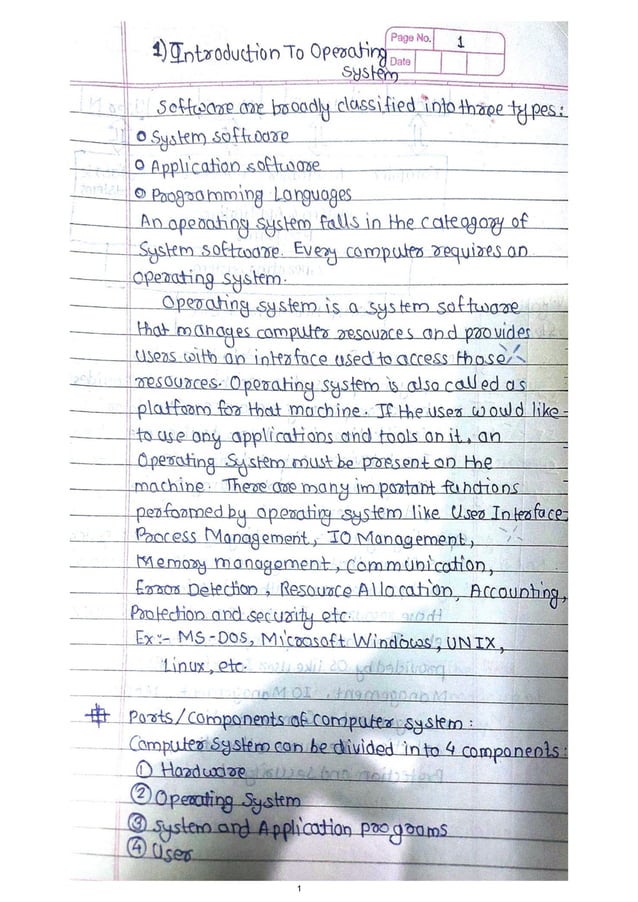 Page No. 1
Date
1) Introduction To Operating
System
Software are broadly classified into three types:
System software
Application software
Programming Languages
An operating system falls in the cateagory of
System software. Every computer requires an
operating system.
Operating system is a system software
that manages computer resources and provides
users with an interface used to access those
resources. Operating system is also called as
platform for that machine. If the user would like
to use any applications and tools on it, an
Operating System must be present on the
machine. There are many important functions
performed by operating system like User Interface,
Process Management, IO Management,
Memory management, Communication,
Error Detection, Resource Allocation, Accounting,
Protection and security etc.
Ex:- MS-DOS, Microsoft Windows, UNIX,
Linux, etc.
# Parts/Components of computer system:
Computer System can be divided into 4 components:
① Hardware
② Operating System
③ System and Application programs
④ User
1